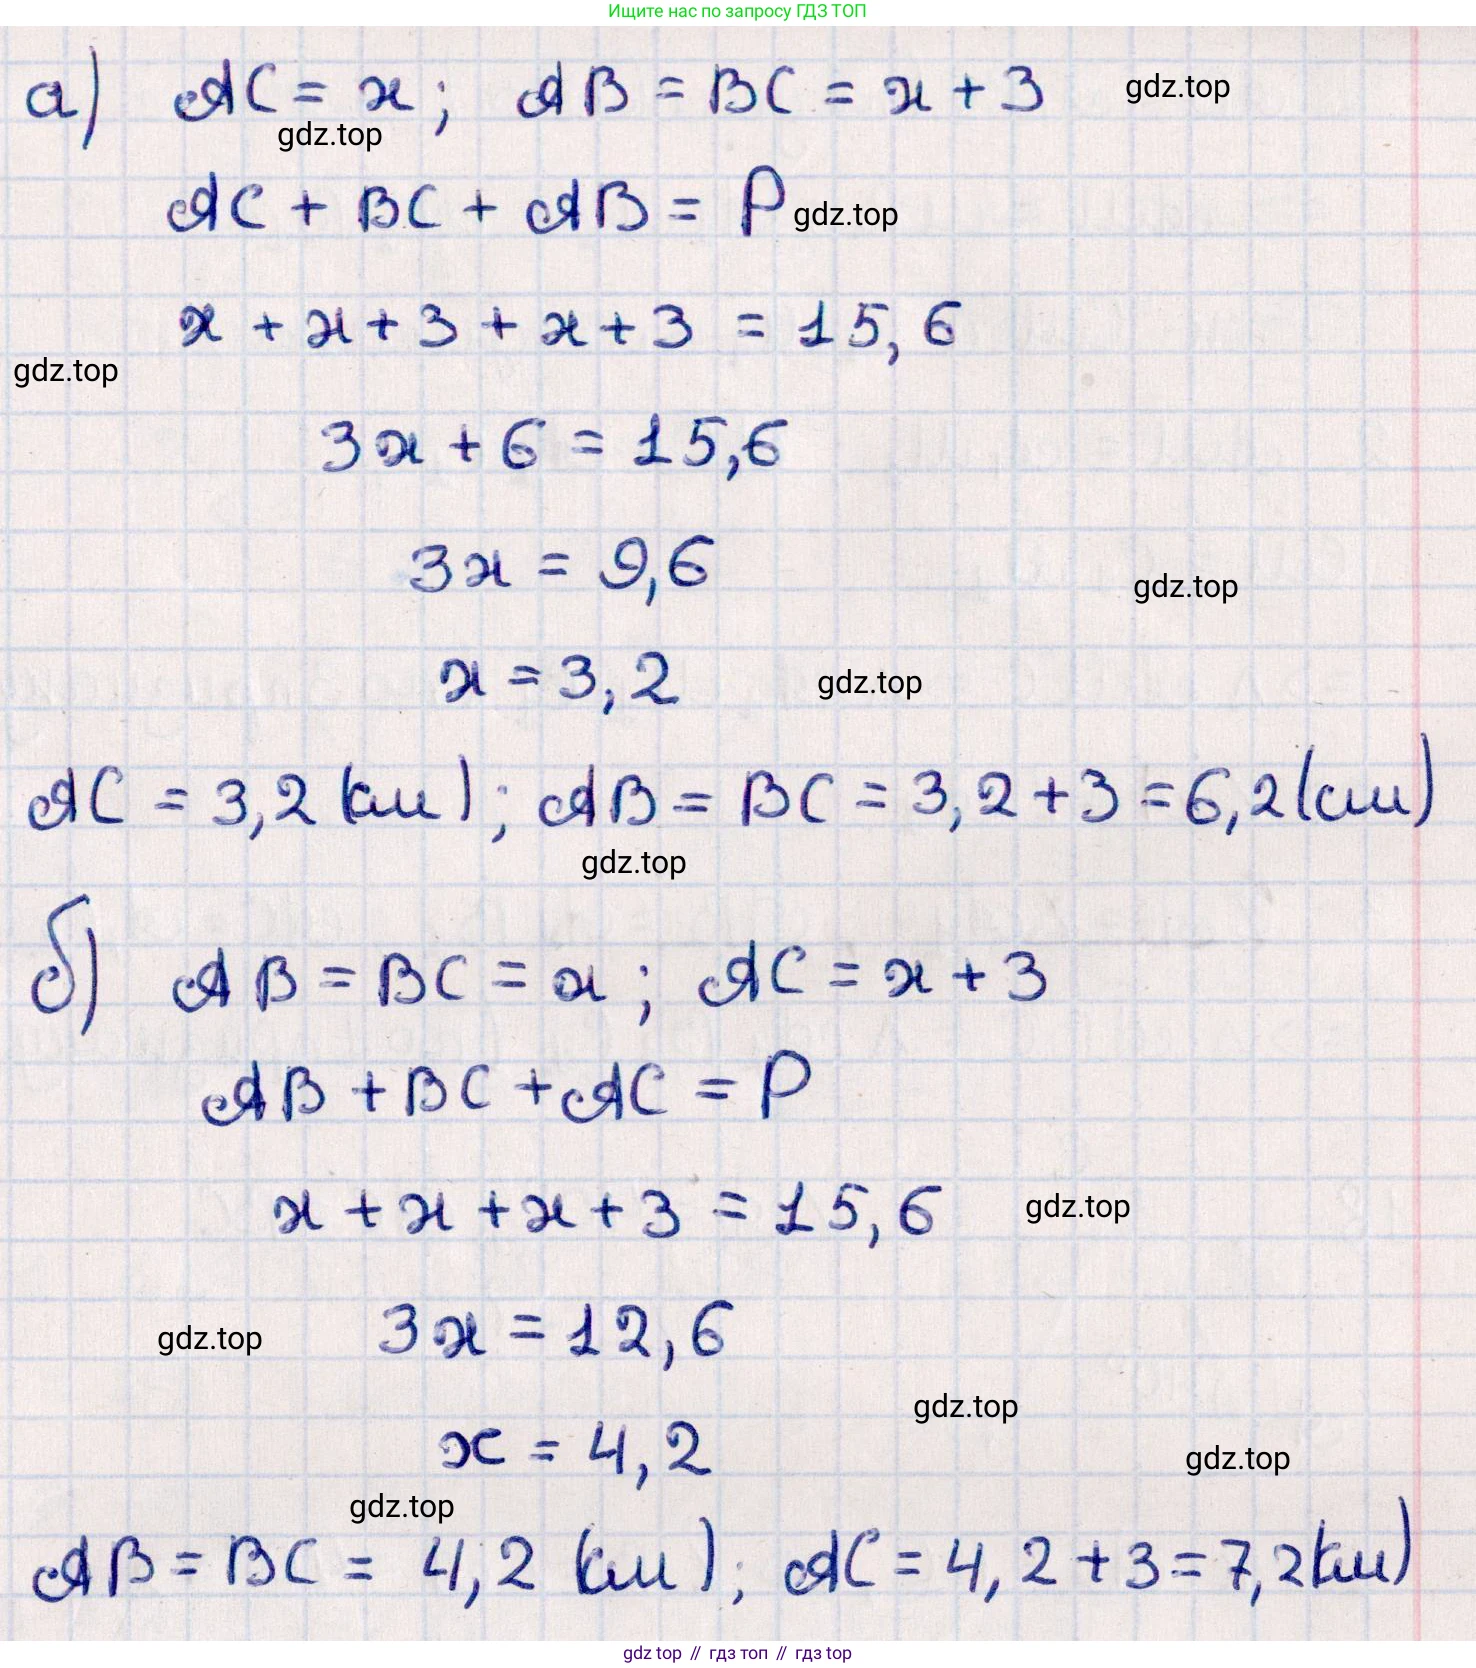 Ищите нас по запросу ГДЗ ТОП
а) AC = x; AB = BC = x + 3 gdz.top
gdz.top
AC + BC + AB = P gdz.top
x + x + 3 + x + 3 = 15,6
gdz.top
3x + 6 = 15,6
3x = 9,6
gdz.top
x = 3,2 gdz.top
AC = 3,2 (см); AB = BC = 3,2 + 3 = 6,2 (см)
gdz.top
б) AB = BC = x; AC = x + 3
AB + BC + AC = P
x + x + x + 3 = 15,6 gdz.top
gdz.top 3x = 12,6
gdz.top
x = 4,2 gdz.top
gdz.top
AB = BC = 4,2 (см); AC = 4,2 + 3 = 7,2 (см)
gdz top // гдз топ // гдз top